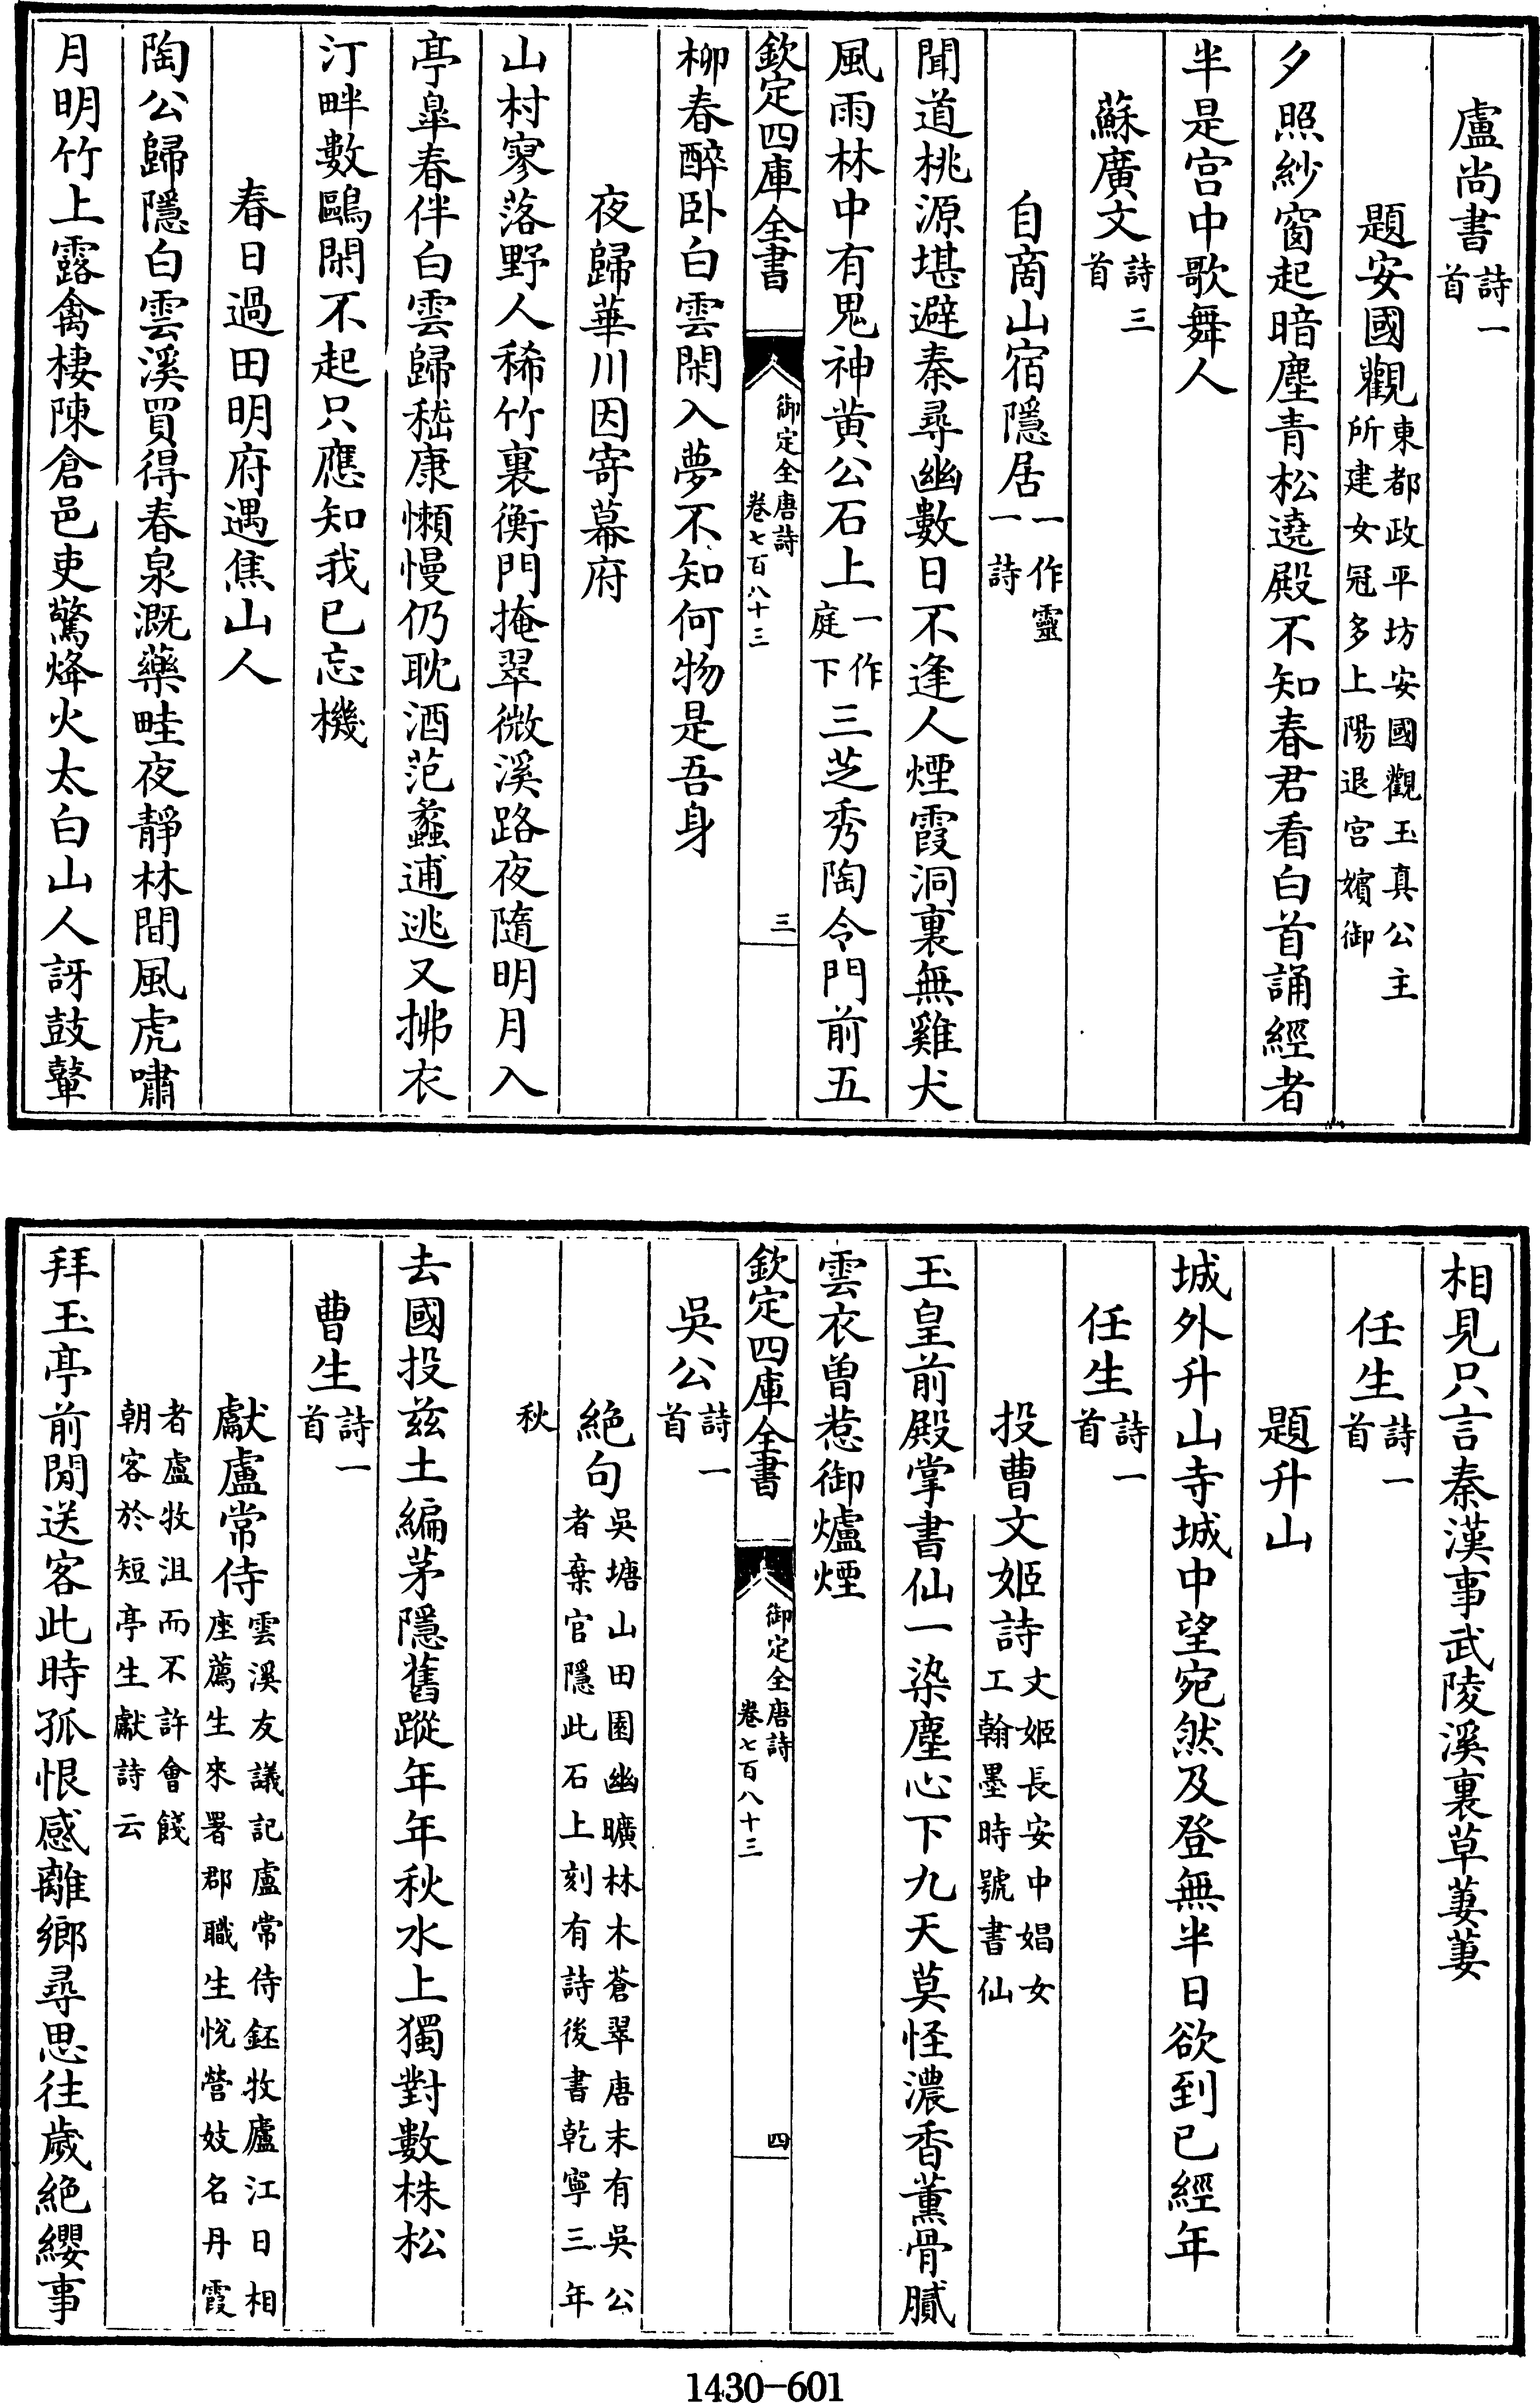 盧尚書詩一首
題安國觀東都政平坊安國觀玉真公主所建女冠多上陽退宮嬪御
夕照紗窗起暗塵青松遶殿不知春君看白首誦經者
半是宫中歌舞人
蘇廣文詩三首
自商山宿隱居一作靈一詩
聞道桃源堪避秦尋幽數日不逢人煙霞洞裏無雞犬
風雨林中有鬼神黄公石上一作庭下三芝秀陶令門前五
欽定四庫全書
御定全唐詩
卷七百八十三
三
柳春醉卧白雲閑入夢不知何物是吾身
夜歸華川因寄幕府
山村寥落野人稀竹裏衡門掩翠微溪路夜隨明月入
亭皐春伴白雲歸嵇康懶慢仍耽酒范蠡逋逃又拂衣
汀畔數鷗閑不起只應知我已忘機
春日過田明府遇焦山人
陶公歸隱白雲溪買得春泉溉藥畦夜靜林間風虎嘯
月明竹上露禽棲陳倉邑吏驚烽火太白山人訝鼓鼙
相見只言秦漢事武陵溪裏草萋萋
任生詩一首
題升山
城外升山寺城中望宛然及登無半日欲到已經年
任生詩一首
投曹文姬詩文姬長安中娼女工翰墨時號書仙
玉皇前殿掌書仙一染塵心下九天莫怪濃香薰骨膩
雲衣曽惹御爐煙
欽定四庫全書
御定全唐詩
卷七百八十三
四
吳公詩一首
絶句吳塘山田園幽曠林木蒼翠唐末有吳公者棄官隱此石上刻有詩後書乾寧三年
秋
去國投兹土編茅隱舊蹤年年秋水上獨對數株松
曹生詩一首
獻盧常侍雲溪友議記盧常侍鉟牧廬江日相座薦生來署郡職生悦營妓名丹霞
者盧牧沮而不許會餞朝客於短亭生獻詩云
拜玉亭前閒送客此時孤恨感離鄉尋思往歲絶纓事
1430-601